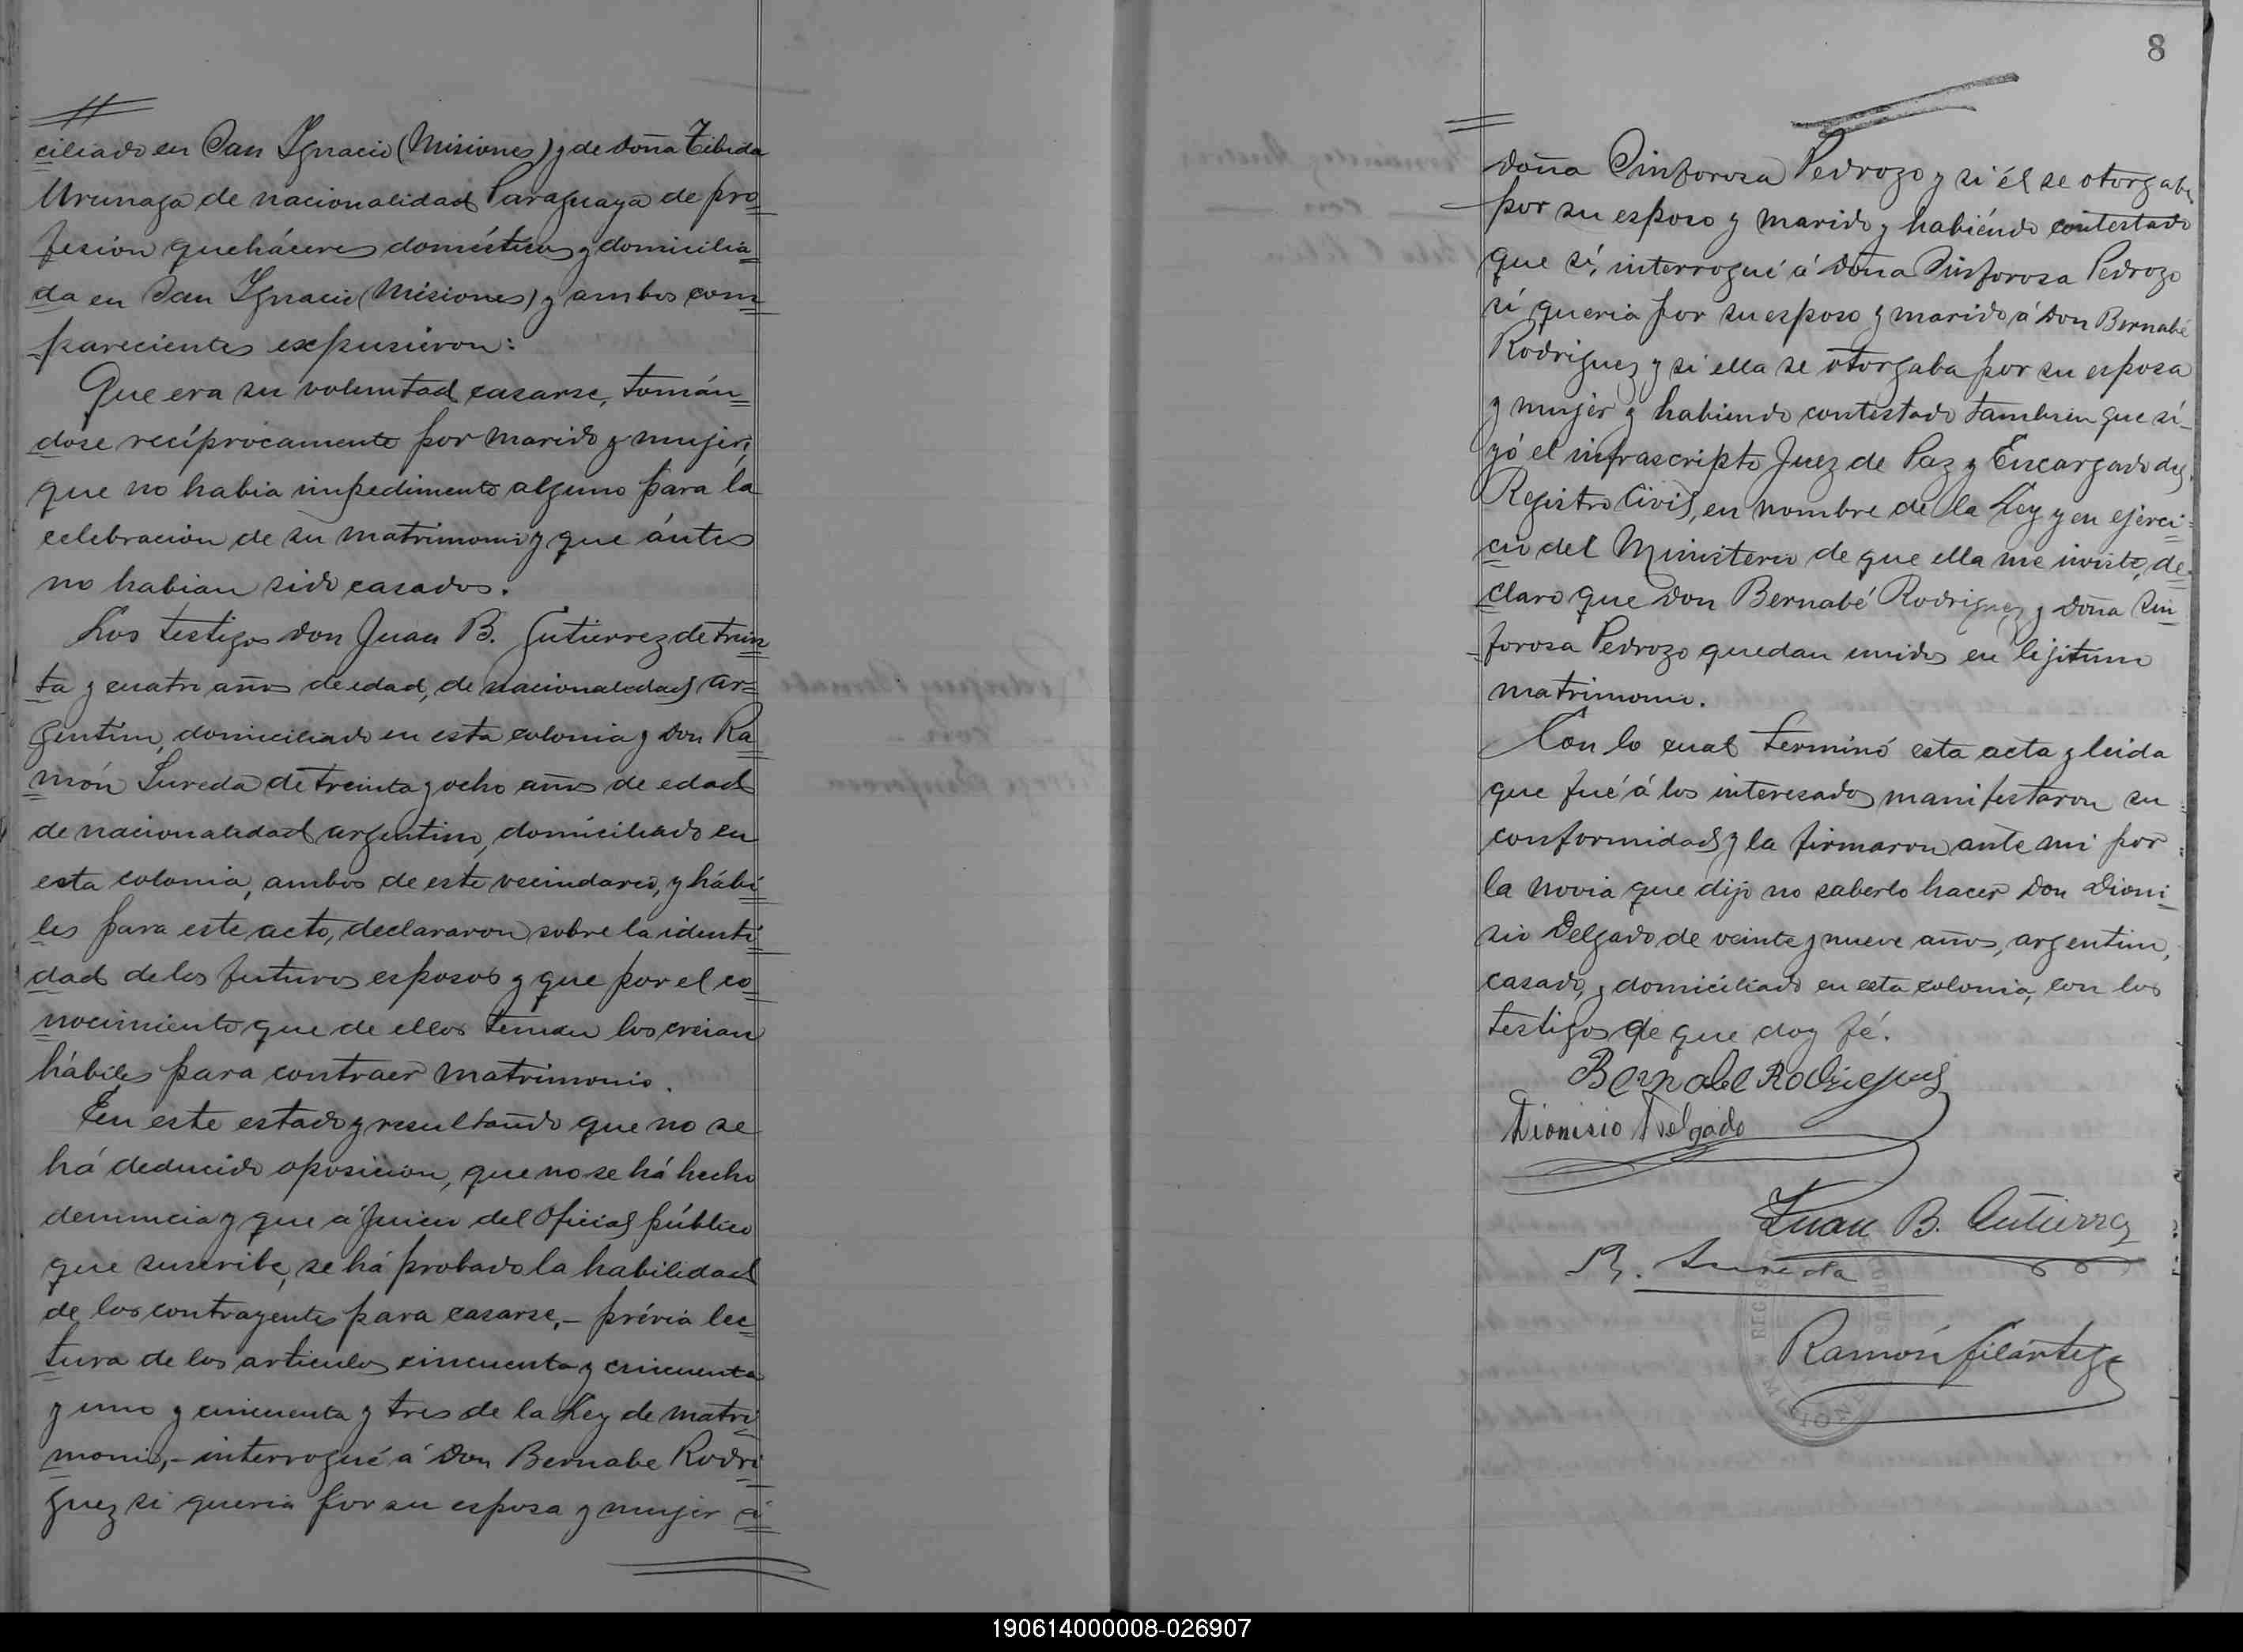 ciliado en San Ygnacio (Misiones) y de doña Tibida
Urunaga de nacionalidad Paraguaya de pro
fesión queháceres domésticos y domicilia
da en San Ygnacio (Misiones) y ambos com
parecientes expusieron:
Que era su voluntad casarse, tomán
dose recíprocamente por marido y mujer;
que no habia impedimento alguno para la
celebración de su matrimonio y que ántes
no habian sido casados.
Los testigos don Juan B. Gutierrez de trein
ta y cuatro años de edad, de nacionalidad ar
gentino, domiciliado en esta colonia y don Ra
món Sureda de treinta y ocho años de edad
de nacionalidad argentino, domiciliado en
esta colonia, ambos de este vecindario, y hábi
les para este acto, declararon sobre la identi
dad de los futuros esposos y que por el co
nocimiento que de ellos tenian los creian
hábiles para contraer matrimonio.
En este estado y resultando que no se
há deducido oposición, que no se há hecho
denuncia y que a juicio del Oficial público
que suscribe, se há probado la habilidad
de los contrayentes para casarse,- prévia lec
tura de los articulos cincuenta y cincuenta
y uno y cincuenta y tres de la Ley de matri
monio,- interrogué á don Bernabe Rodri
guez si queria por su esposa y mujer á
8
doña Sinforosa Pedrozo y si él se otorgaba
por su esposo y marido y habiéndo contestado
que sí, interrogué á doña Sinforosa Pedrozo
si queria por su esposo y marido á don Bernabé
Rodriguez y si ella se otorgaba por su esposa
y mujer y habiendo contestado tambien que sí
yó el infrascripto Juez de Paz y Encargado del
Registro Civil, en nombre de la Ley y en ejerci
cio del Ministerio de que ella me inviste, de
claro que don Bernabé Rodriguez y doña Sin
forosa Pedrozo quedan unidos en lejitimo
matrimonio.
Con lo cual terminó esta acta y leida
que fué á los interesados manifestaron su
conformidad y la firmaron ante mi por
la novia que dijo no saberlo hacer don Dioni
sio Delgado de veinte y nueve años, argentino,
casado, y domiciliado en esta colonia, con los
testigos de que doy fé.
Bernabe Rodriguez
Dionisio Delgado
Juan B. Gutierrez
R. Sureda
Ramón Filártiga
190614000008-026907